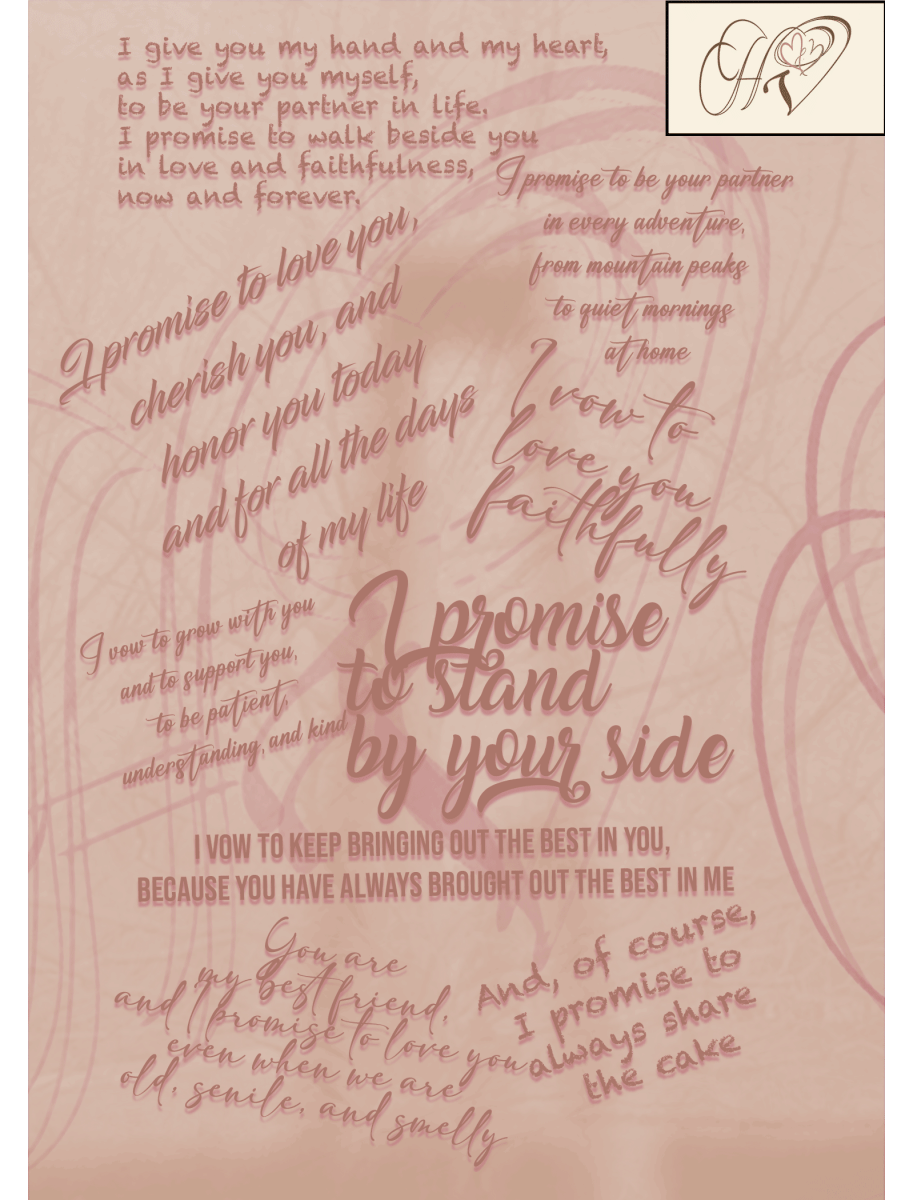 I give you my hand and my heart,
as I give you myself,
to be your partner in life.
I promise to walk beside you
in love and faithfulness,
now and forever.
I promise to be your partner
in every adventure,
from mountain peaks
to quiet mornings
at home
I promise to love you,
cherish you, and
honor you today
and for all the days
of my life
I vow to
love you
faithfully
I vow to grow with you
and to support you,
to be patient,
understanding, and kind
I promise
to stand
by your side
I VOW TO KEEP BRINGING OUT THE BEST IN YOU,
BECAUSE YOU HAVE ALWAYS BROUGHT OUT THE BEST IN ME
You are
my best friend,
and I promise to love you
even when we are
old, senile, and smelly
And, of course,
I promise to
always share
the cake